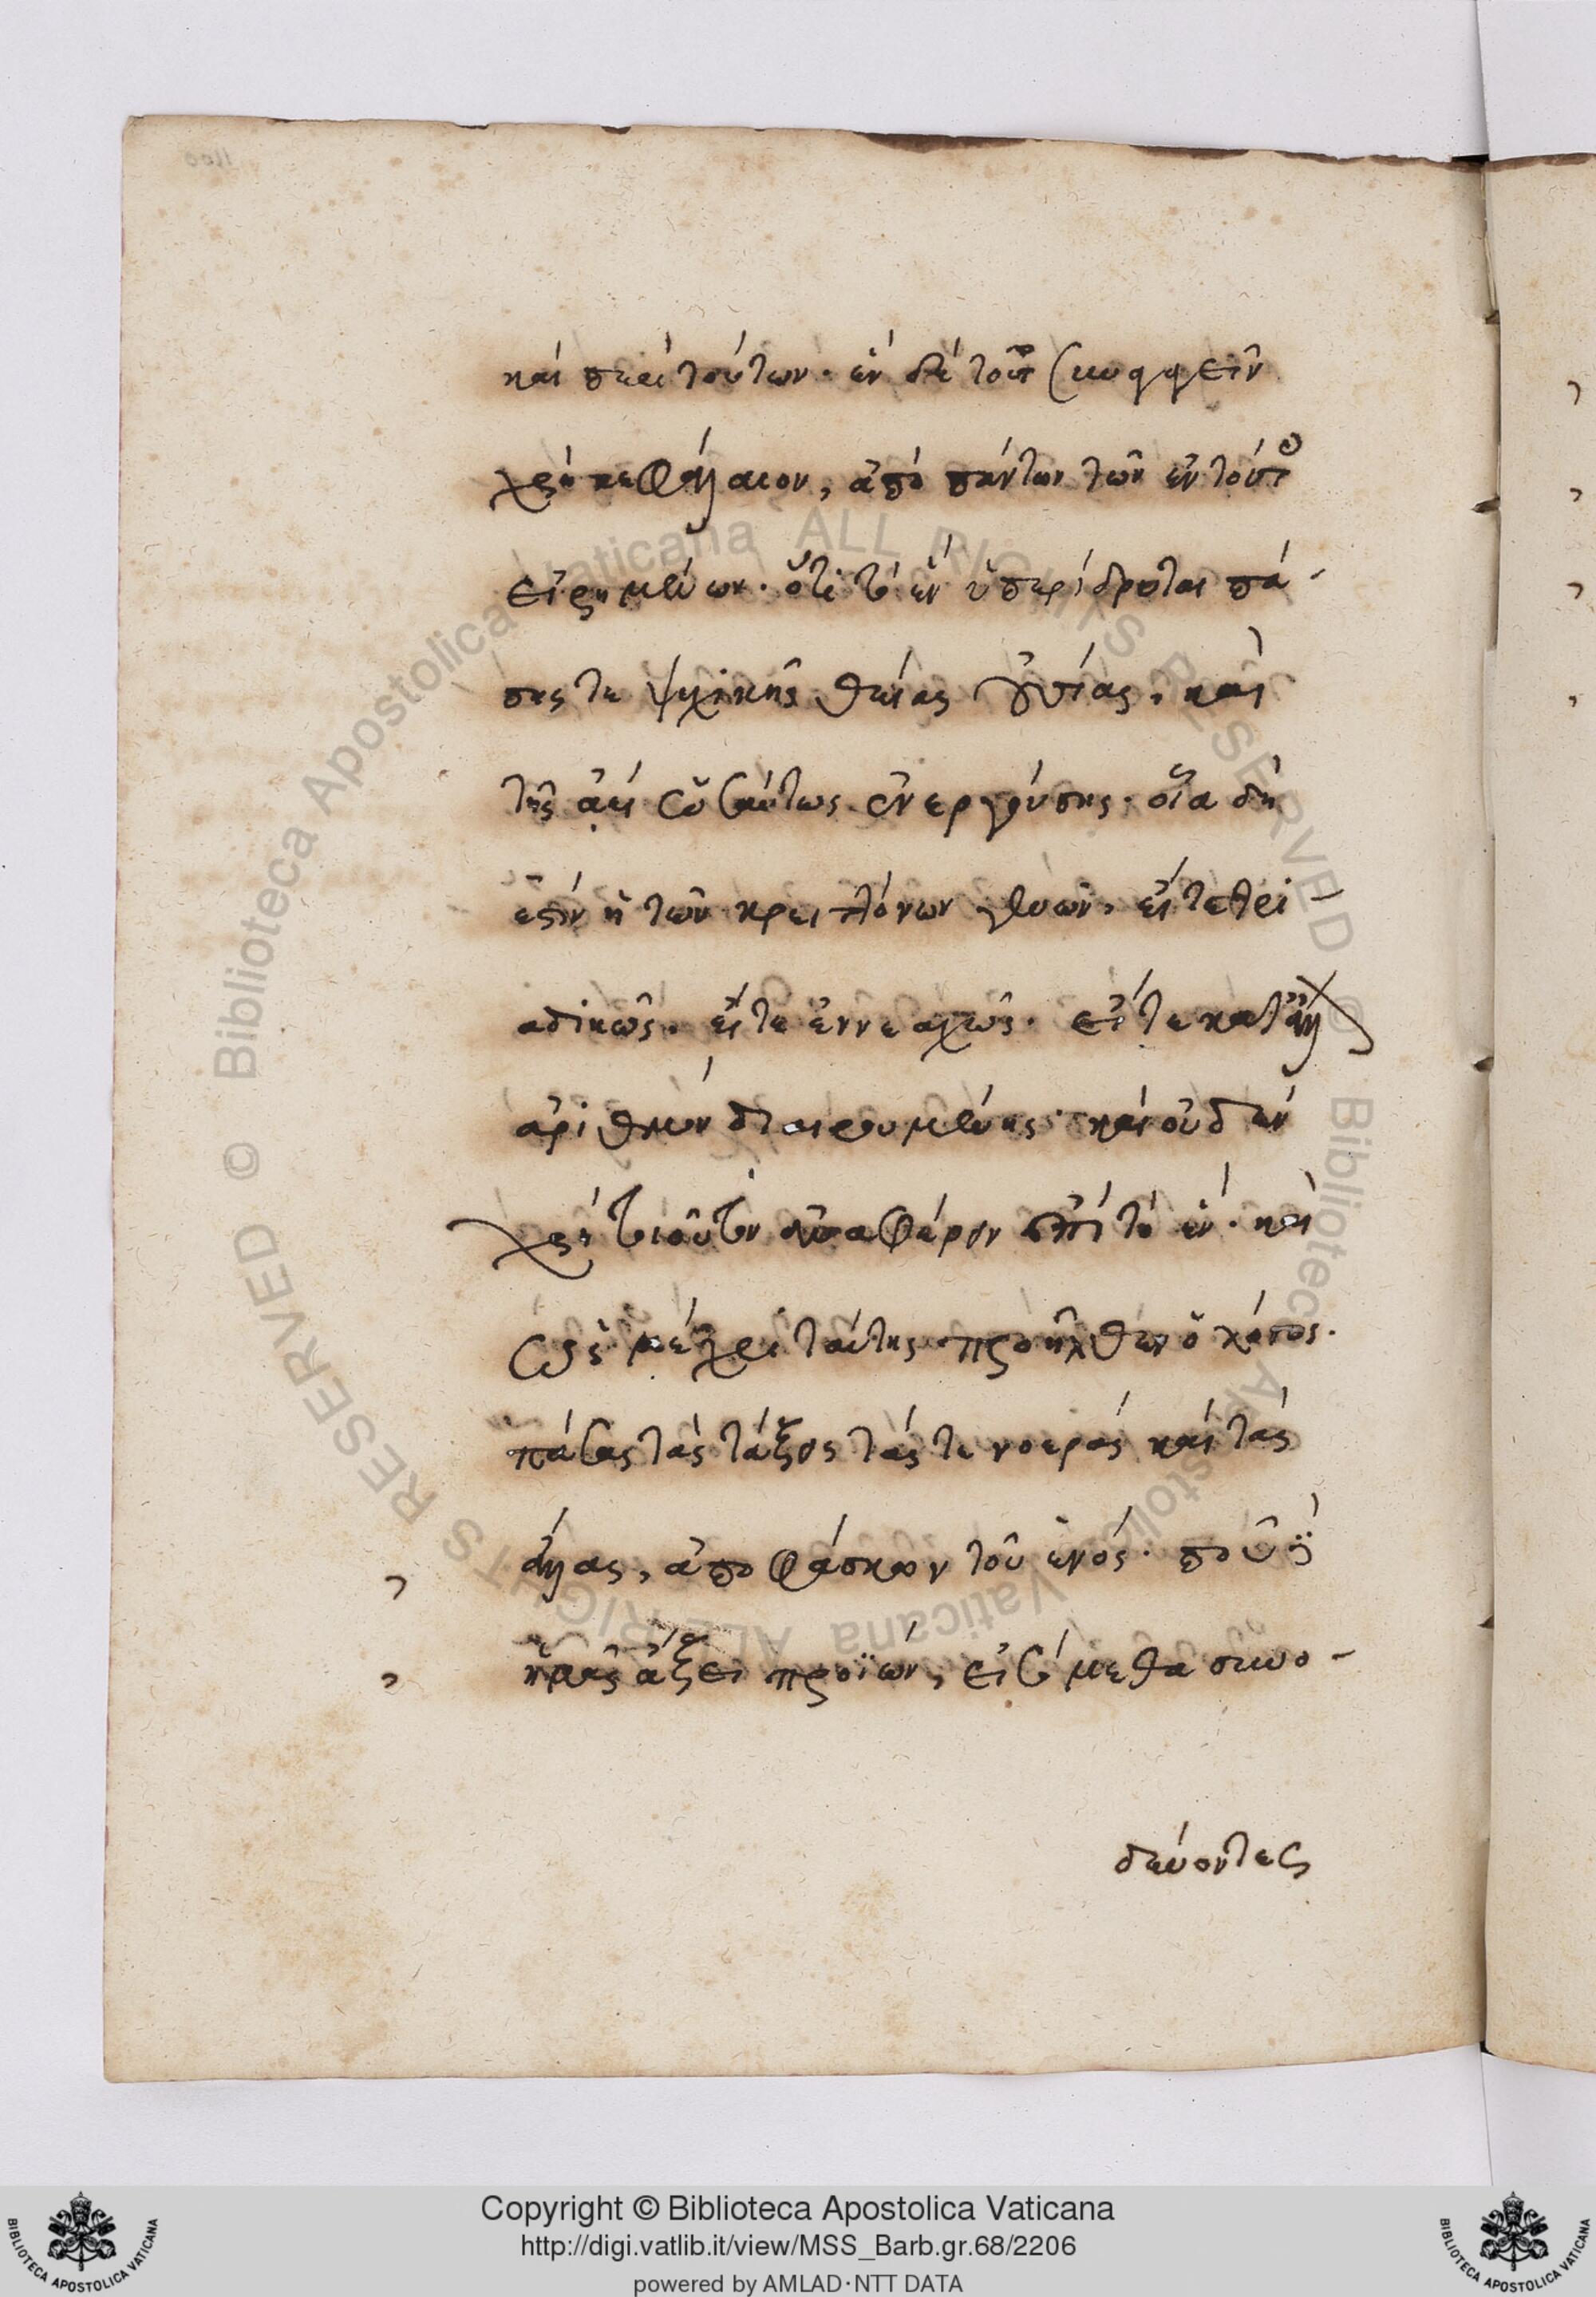 καὶ περὶ τούτων· ἓν δὲ τοῦτο συνάγειν
χρὴ κεφάλαιον, ἀπὸ πάντων τῶν ἐν τούτοις
εἰρημένων· ὅτι τὸ ἓν ὑπερίδρυται πά-
σης τε ψυχικῆς θείας οὐσίας, καὶ
τῆς ἀεὶ ὡσαύτως ἐνεργούσης· οἵα δή
ἐστιν ἡ τῶν κρειττόνων γενῶν, εἴτε τρι-
αδικῶς· εἴτε ἐννεαχῶς· εἴτε κατ' ἄλλον
ἀριθμὸν διαιρουμένης· καὶ οὐδὲν
χρὴ τοιοῦτον ἀναφέρειν ἐπὶ τὸ ἕν· καὶ
ὡς μέχρι ταύτης προῆλθεν ὁ λόγος·
πάσας τὰς τάξεις τάς τε νοερὰς καὶ τὰς
ἄλλας, ἀποφάσκων τοῦ ἑνός· ποῦ δὲ
ἡμᾶς ἄξει προϊὼν, εἰσόμεθα συνο-
δεύοντες
Copyright © Biblioteca Apostolica Vaticana
http://digi.vatlib.it/view/MSS_Barb.gr.68/2206
powered by AMLAD·NTT DATA
BIBLIOTECA APOSTOLICA VATICANA
BIBLIOTECA APOSTOLICA VATICANA
© Biblioteca Apostolica Vaticana ALL RIGHTS RESERVED
© Biblioteca Apostolica Vaticana ALL RIGHTS RESERVED